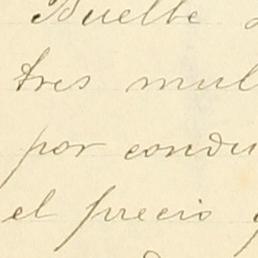 Buelbe
tres mul
por condu
el precio